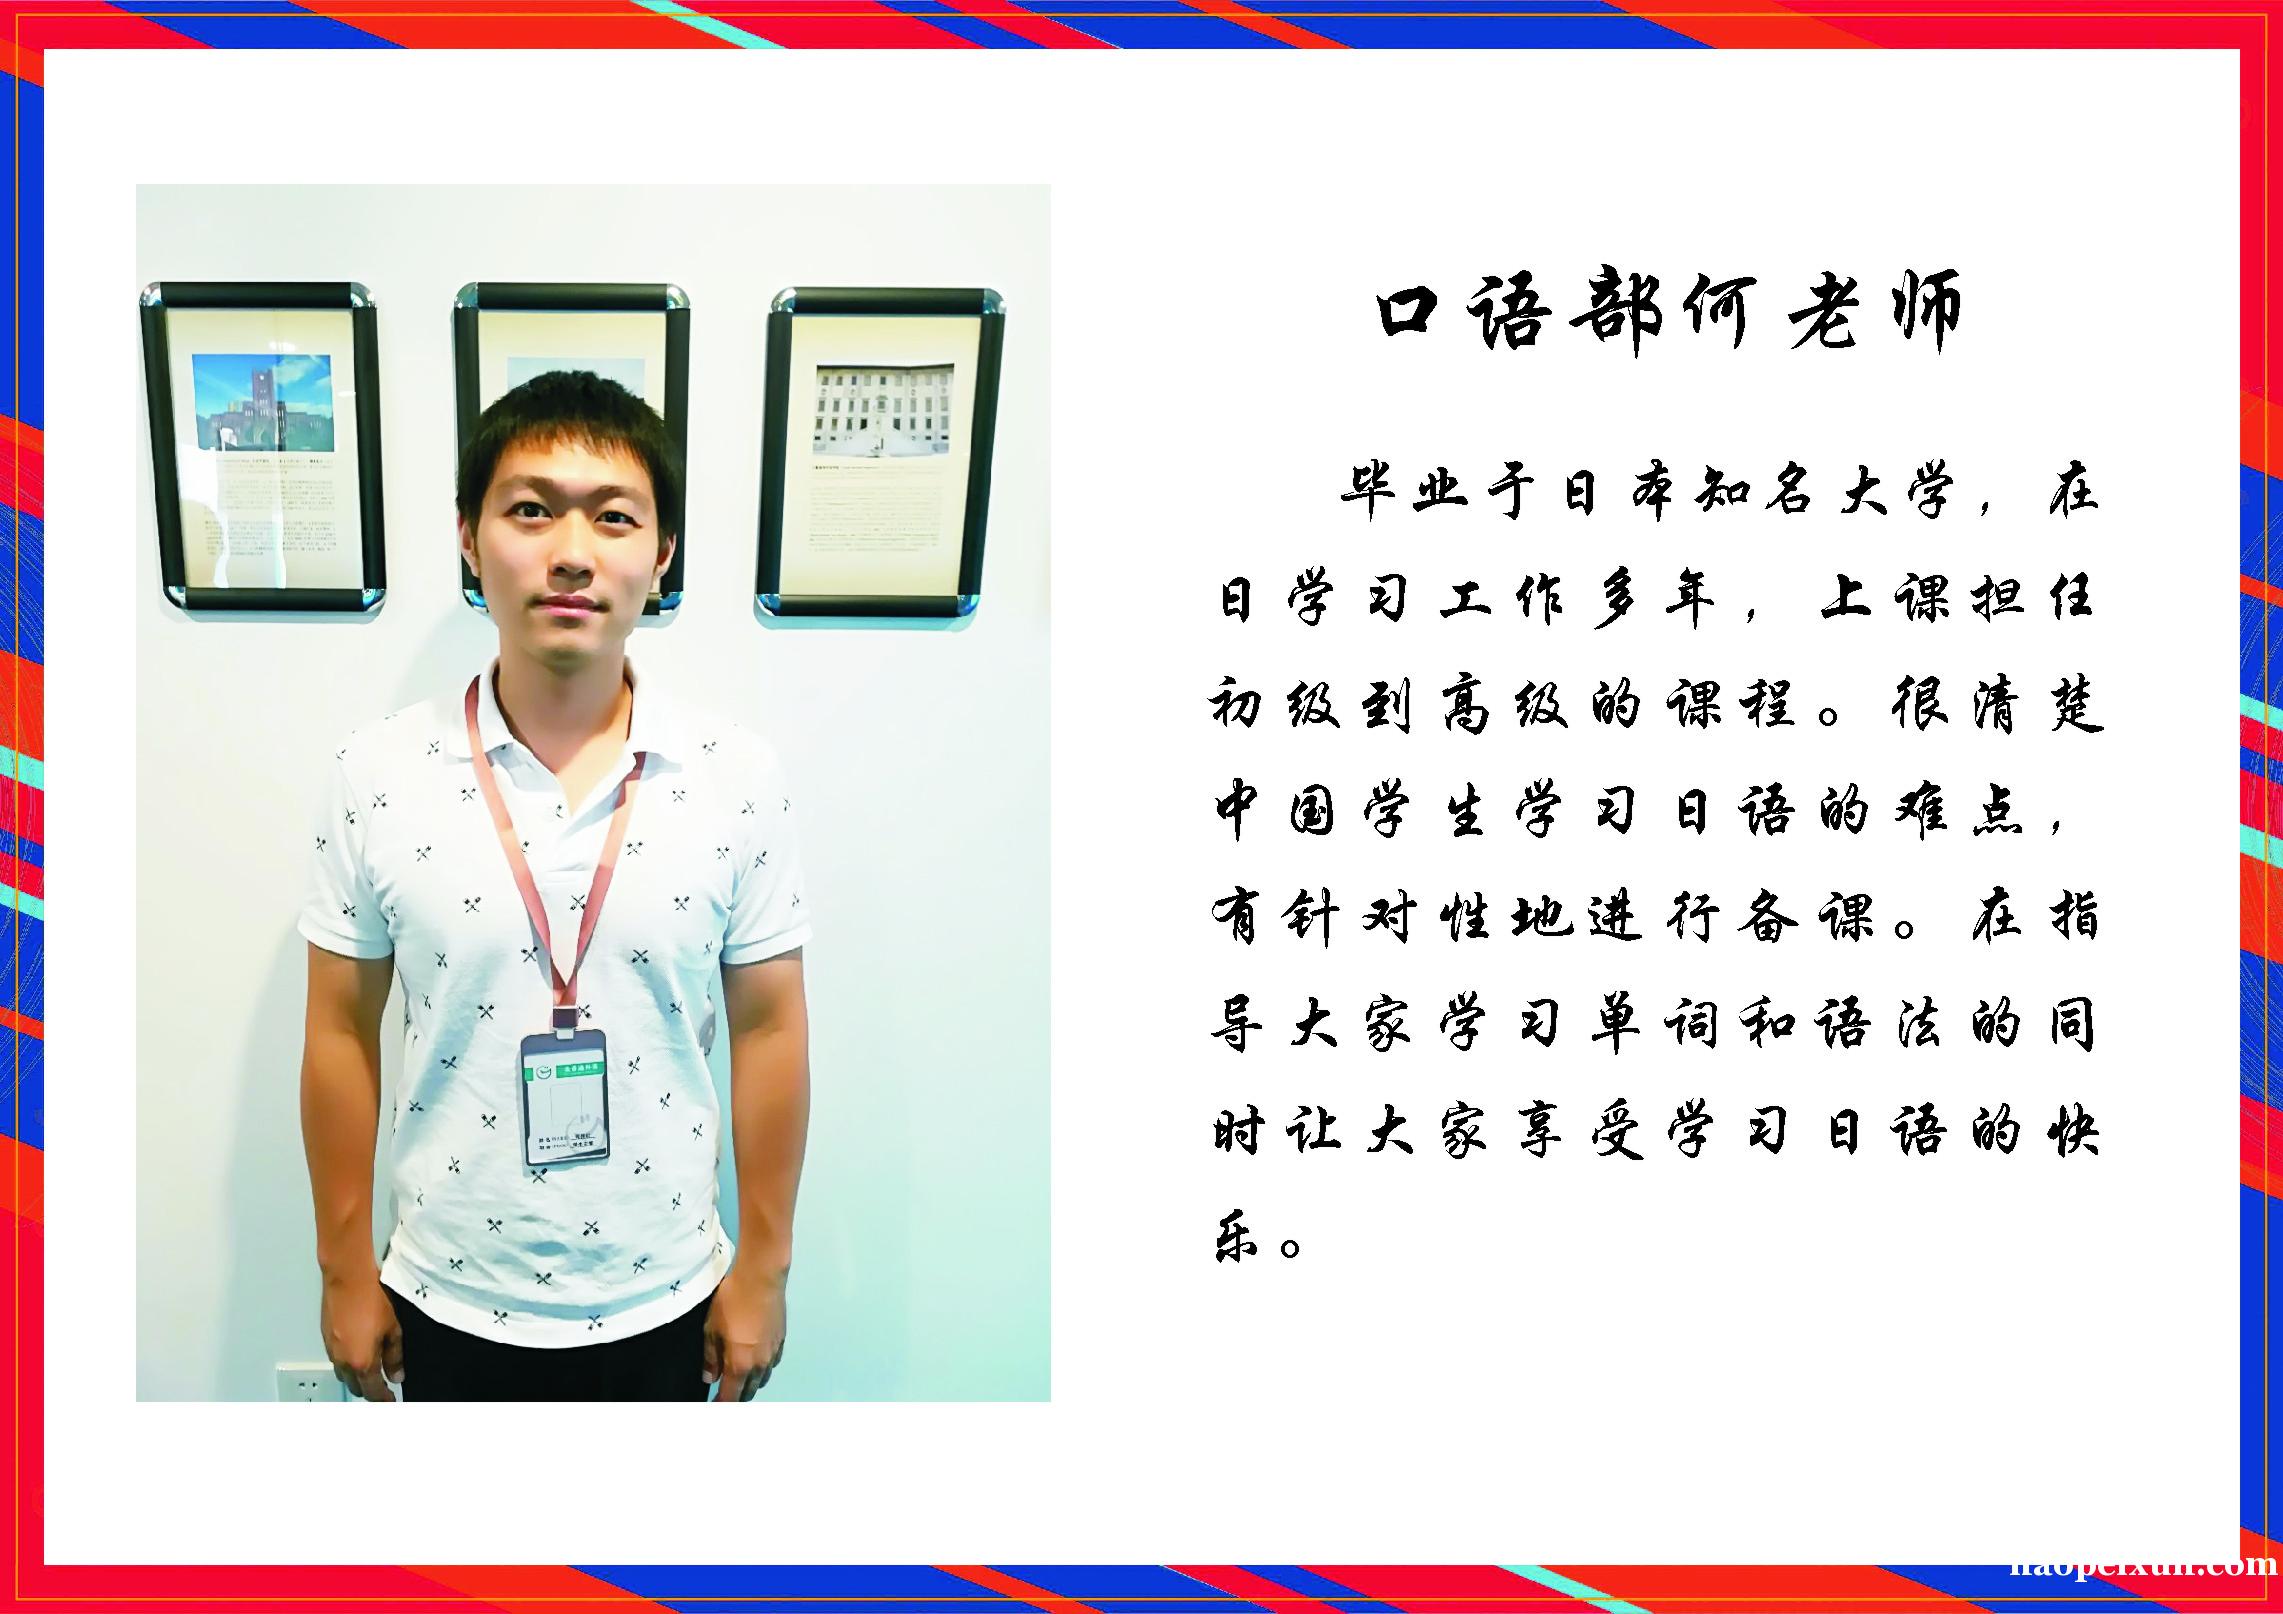 口语部何老师
毕业于日本知名大学，在
日学习工作多年，上课担任
初级到高级的课程。很清楚
中国学生学习日语的难点，
有针对性地进行备课。在指
导大家学习单词和语法的同
时让大家享受学习日语的快
乐。
haopeixun.com